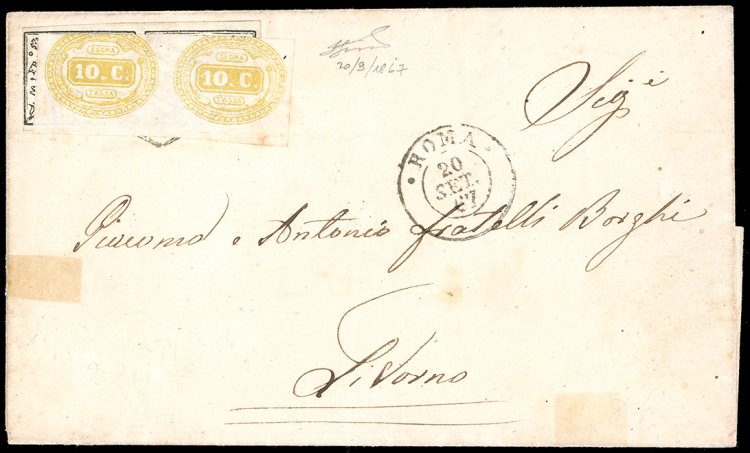 SEGNA
10. C.
TASSA
SEGNA
10. C.
TASSA
20/9/1867
Sigi
ROMA
20
SET.
67
Giacomo e Antonio fratelli Borghi
Livorno